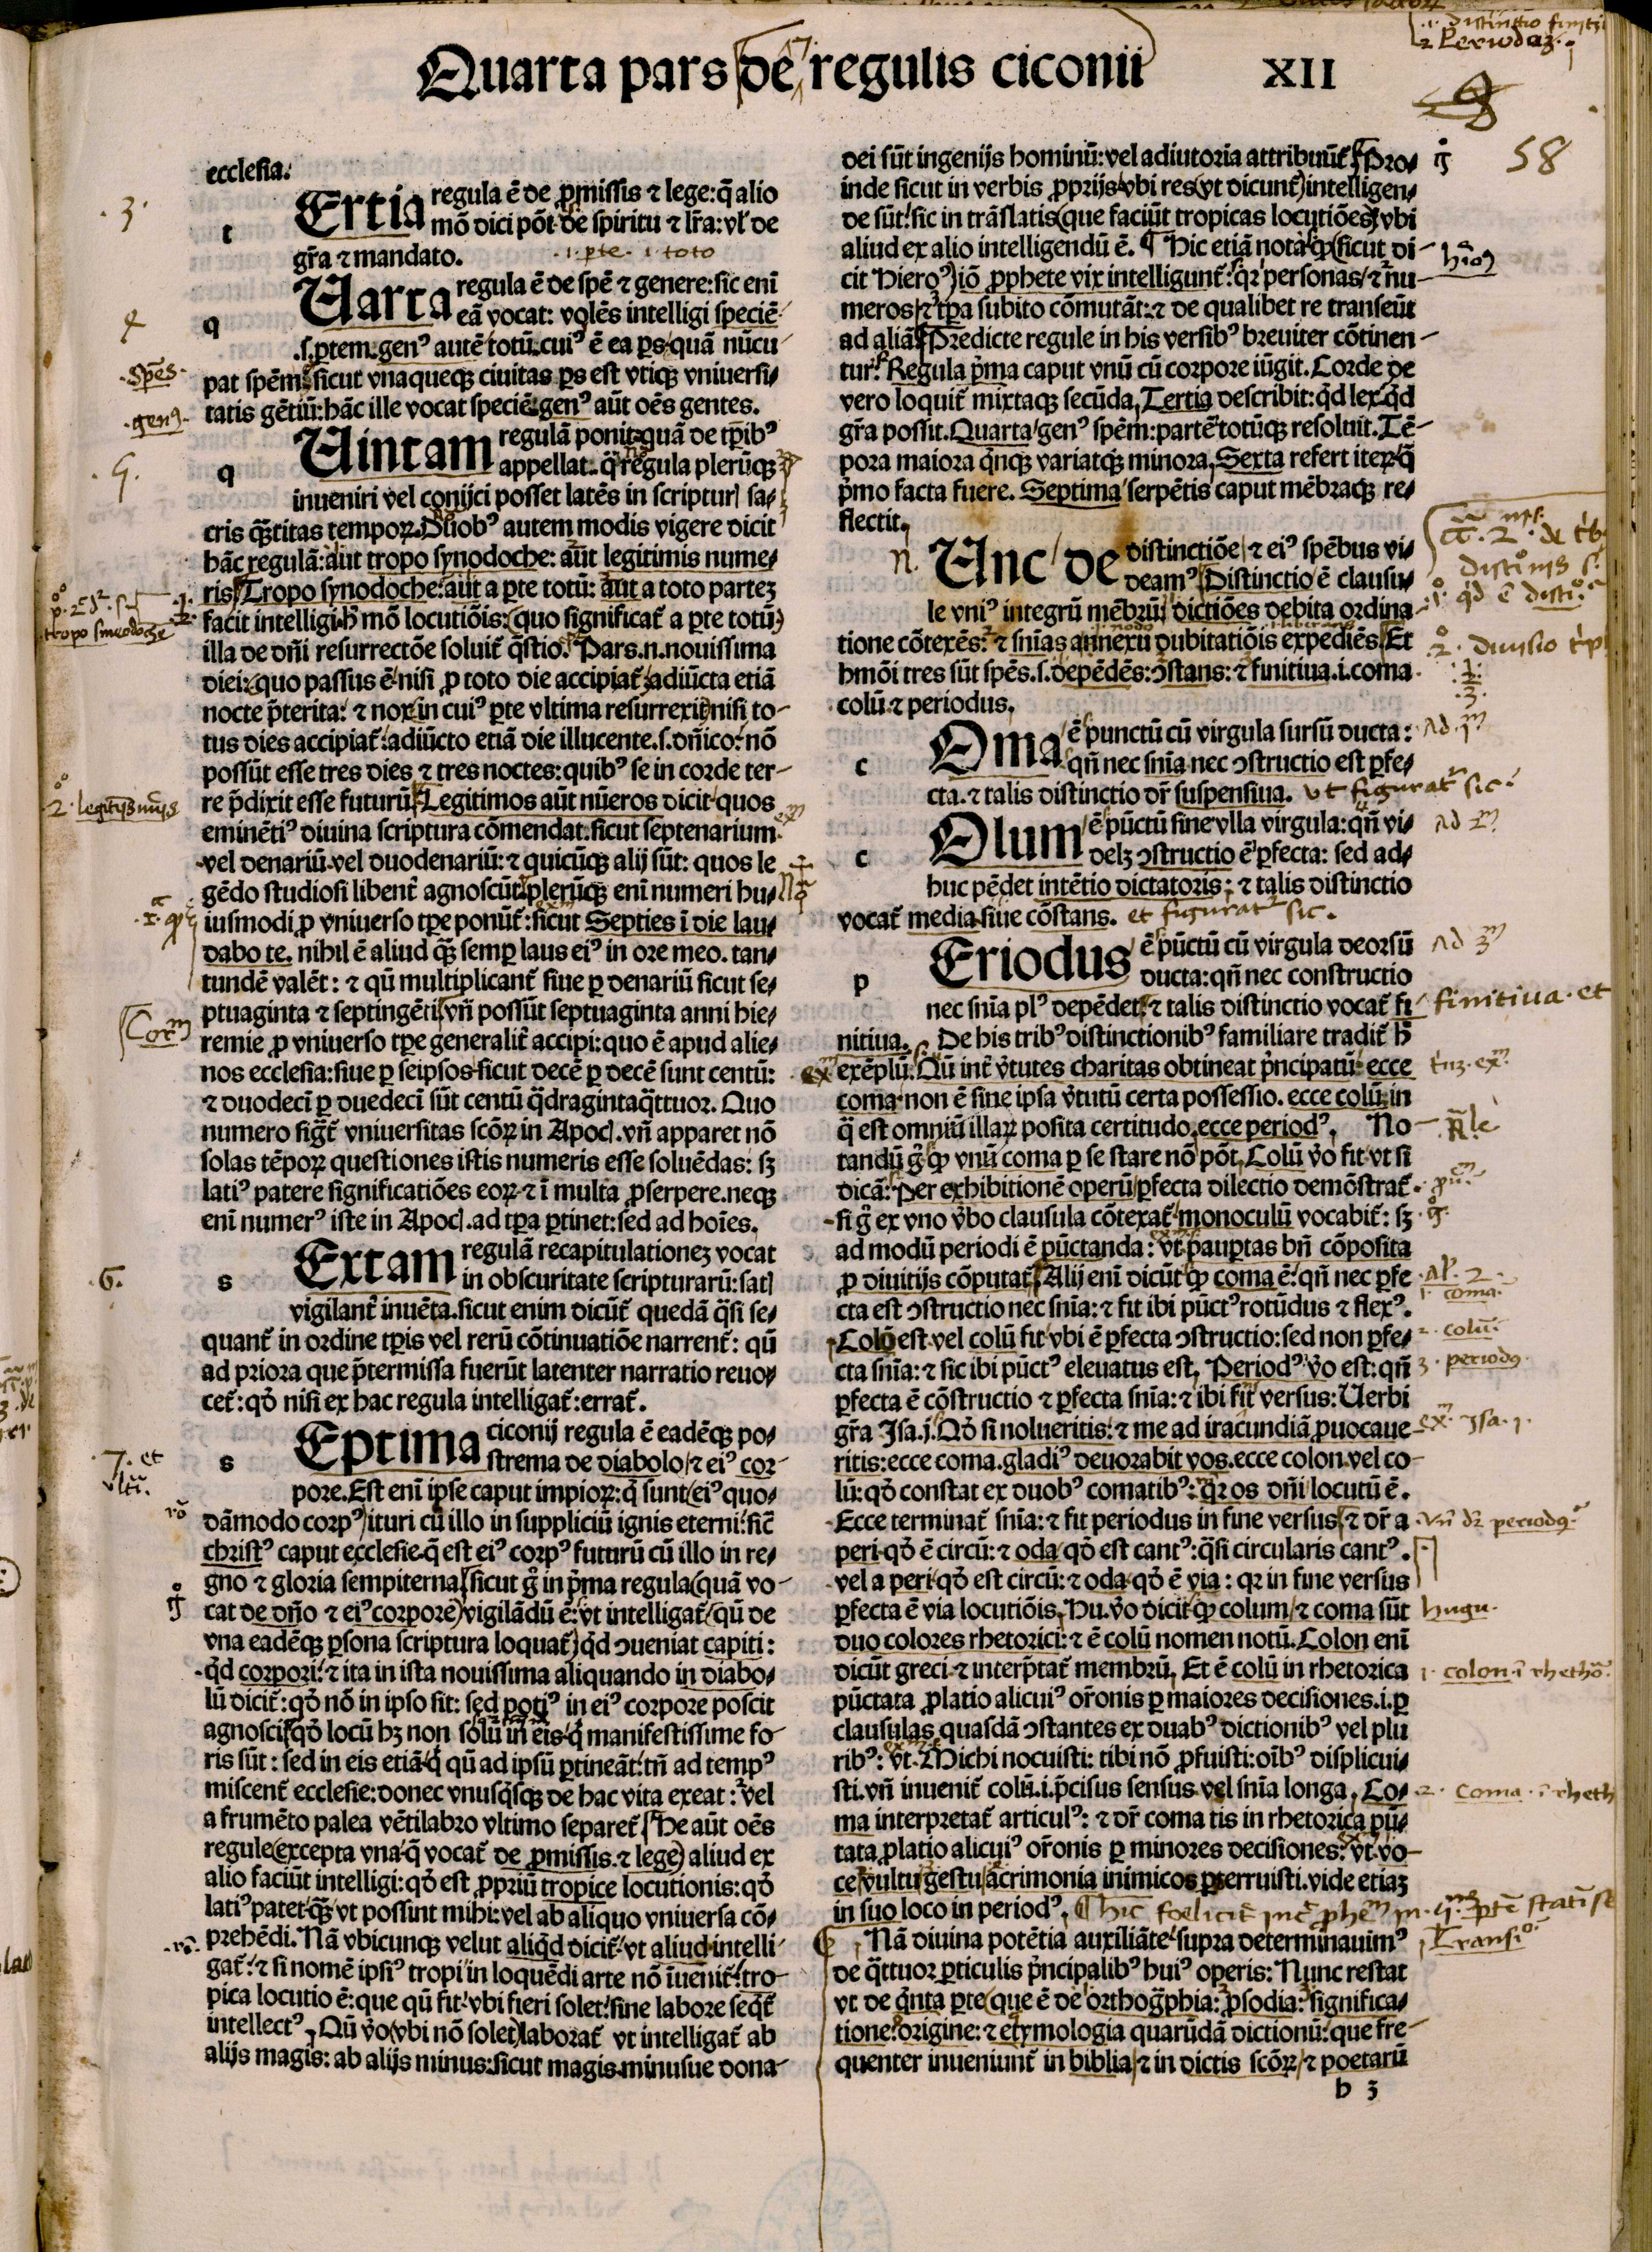 Quarta pars de regulis ciconii XII
58
ecclesia.
tErtia regula ē de ꝓmissis ⁊ lege: q̄ alio
mō dici pōt de spiritu ⁊ lr̄a: vl' de
gr̄a ⁊ mandato.
qUarta regula ē de spē ⁊ genere: sic enī
eā vocat: volēs intelligi speciē
.s. ꝑtem. genꝰ autē totū. cuiꝰ ē ea ꝑs quā nūcu
pat spēm. sicut vnaqueqꝫ ciuitas ꝑs est vtiqꝫ vniuersi-
tatis gētiū: hāc ille vocat speciē. genꝰ aūt oēs gentes.
qUintam regulā ponit quā de tꝑibꝰ
appellat. q̄ regula plerūqꝫ
inueniri vel conijci posset latēs in scripturꝭ sa-
cris quātitas tempoꝝ. Duobꝰ autem modis vigere dicit
hāc regulā: aut tropo synodoche: aūt legitimis nume-
ris Tropo synodoche: aut a ꝑte totū: aut a toto partez
facit intelligi. h̄ mō locutiōis: (quo significat̄ a ꝑte totū)
illa de dn̄i resurrectōe soluit̄ q̄stio. Pars. n. nouissima
diei: quo passus ē nisi ꝓ toto die accipiat̄ adiūcta etiā
nocte p̄terita: ⁊ nox in cuiꝰ ꝑte vltima resurrexit nisi to-
tus dies accipiat̄: adiūcto etiā die illucente. s. dn̄ico: nō
possūt esse tres dies ⁊ tres noctes: quibꝰ se in corde ter-
re p̄dixit esse futurū. Legitimos aūt nūeros dicit quos
eminētiꝰ diuina scriptura cōmendat. sicut septenarium
vel denariū. vel duodenariū: ⁊ quicūqꝫ alij sūt: quos le
gēdo studiosi libent̄ agnoscūt. plerūqꝫ enī numeri hu-
iusmodi ꝓ vniuerso tꝑe ponūt̄: sicut Septies ī die lau-
dabo te. nihil ē aliud qꝫ semꝑ laus eiꝰ in ore meo. tan-
tundē valēt: ⁊ qū multiplicant̄ siue ꝑ denariū sicut se-
ptuaginta ⁊ septingēti vn̄ possūt septuaginta anni hie-
remie ꝓ vniuerso tꝑe generalit̄ accipi: quo ē apud alie-
nos ecclesia: siue ꝑ seipsos sicut decē ꝑ decē sunt centū:
⁊ duodecī ꝑ duedecī sūt centū q̄dragintaq̄ttuor. Quo
numero sigt̄ vniuersitas scōꝝ in Apocꝭ. vn̄ apparet nō
solas tēpoꝝ questiones istis numeris esse soluēdas: sꝫ
latiꝰ patere significatiōes eoꝝ ⁊ ī multa ꝓserpere. neqꝫ
enī numerꝰ iste in Apocꝭ. ad tꝑa ꝑtinet: sed ad hoīes.
sExtam regulā recapitulationez vocat
in obscuritate scripturarū: satꝭ
vigilant̄ inuēta. sicut enim dicūt̄ quedā q̄si se-
quant̄ in ordine tꝑis vel rerū cōtinuatiōe narrent̄: qū
ad priora que p̄termissa fuerūt latenter narratio reuo-
cet̄: qd̓ nisi ex hac regula intelligat̄: errat̄.
sEptima ciconij regula ē eadēqꝫ po-
strema de diabolo ⁊ eiꝰ cor-
pore. Est enī ipse caput impioꝝ: q̄ sunt eiꝰ quo-
dāmodo corpꝰ ituri cū illo in suppliciū ignis eterni: sic̄
christꝰ caput ecclesie q̄ est eiꝰ corpꝰ futurū cū illo in re-
gno ⁊ gloria sempiterna sicut g̊ in p̄ma regula (quā vo-
cat de dn̄o ⁊ eiꝰ corpore) vigilādū ē: vt intelligat̄ (qū de
vna eadēqꝫ ꝑsona scriptura loquat̄) qd̓ ↄueniat capiti:
qd̓ corpori: ⁊ ita in ista nouissima aliquando in diabo-
lū dicit̄: qd̓ nō in ipso sit: sed potiꝰ in eiꝰ corpore poscit
agnosci qd̓ locū hꝫ non solū in eis q̄ manifestissime fo-
ris sūt: sed in eis etiā q̄ qū ad ipsū ꝑtineāt: tn̄ ad tempꝰ
miscent̄ ecclesie: donec vnusq̄sqꝫ de hac vita exeat: vel
a frumēto palea vētilabro vltimo separet̄. He aūt oēs
regule (excepta vna q̄ vocat̄ de ꝓmissis ⁊ lege) aliud ex
alio faciūt intelligi: qd̓ est ꝓpriū tropice locutionis: qd̓
latiꝰ patet qꝫ vt possint mihi: vel ab aliquo vniuersa cō-
prehēdi. Nā vbicunqꝫ velut aliqd̓ dicit̄ vt aliud intelli
gat̄: ⁊ si nomē ipsiꝰ tropi in loquēdi arte nō īuenit̄: tro-
pica locutio ē: que qū fit vbi fieri solet: sine labore seqt̄
intellectꝰ. Qū v̓o (vbi nō solet) laborat̄ vt intelligat̄ ab
alijs magis: ab alijs minus: sicut magis minusue dona-
dei sūt ingenijs hominū: vel adiutoria attribuūt̄. Pro-
inde sicut in verbis ꝓprijs vbi res (vt dicunt̄) intelligen-
de sūt: sic in trāslatis (que faciūt tropicas locutiōes) vbi
aliud ex alio intelligendū ē. ¶ Hic etiā nota ꝙ (sicut di-
cit Hieroꝰ) iō ꝓphete vix intelligunt̄: qꝛ personas ⁊ nu-
meros ⁊ tꝑa subito cōmutāt: ⁊ de qualibet re transeūt
ad aliā Predicte regule in his versibꝰ breuiter cōtinen-
tur. Regula p̄ma caput vnū cū corpore iūgit. Corde de
vero loquit̄ mixtaqꝫ secūda. Tertia describit: qd̓ lex qd̓
gr̄a possit. Quarta genꝰ spēm: partē totūqꝫ resoluit. Tē-
pora maiora q̄nqꝫ variatqꝫ minora. Sexta refert iteꝝ q̄
p̄mo facta fuere. Septima serpētis caput mēbraqꝫ re-
flectit.
nUnc de distinctiōe ⁊ eiꝰ spēbus vi-
deamꝰ Distinctio ē clausu-
le vniꝰ integrū mēbrū dictiōes debita ordina-
tione cōtexēs: ⁊ snīas annexu dubitatiōis expediēs. Et
hmōi tres sūt spēs. s. depēdēs: ↄstans: ⁊ finitiua. i. coma
colū ⁊ periodus.
cOma ē punctū cū virgula sursū ducta:
qn̄ nec snīa nec ↄstructio est ꝑfe-
cta. ⁊ talis distinctio dr̄ suspensiua. vt figurat̄ sic
cOlum ē pūctū sine vlla virgula: qn̄ vi-
delꝫ ↄstructio ē ꝑfecta: sed ad-
huc pēdet intētio dictatoris: ⁊ talis distinctio
vocat̄ media siue cōstans. et figurat̄ sic.
pEriodus ē pūctū cū virgula deorsū
ducta: qn̄ nec constructio
nec snīa plꝰ depēdet: ⁊ talis distinctio vocat̄ fi finitiua. et
nitiua. De his tribꝰ distinctionibꝰ familiare tradit̄ h̄
exēplū. Qū int̄ v̓tutes charitas obtineat p̄ncipatū: ecce
coma non ē sine ipsa v̓tutū certa possessio. ecce colū: in
q̄ est omniū illaꝝ posita certitudo. ecce periodꝰ. No-
tandū g̊ ꝙ vnū coma ꝑ se stare nō pōt. Colū v̓o fit vt si
dicā: Per exhibitionē operū ꝑfecta dilectio demōstrat̄.
si g̊ ex vno v̓bo clausula cōtexat̄ monoculū vocabit̄: sꝫ
ad modū periodi ē pūctanda: vt pauꝑtas bn̄ cōposita
ꝓ diuitijs cōputat̄. Alij enī dicūt ꝙ coma ē: qn̄ nec ꝑfe
cta est ↄstructio nec snīa: ⁊ fit ibi pūctꝰ rotūdus ⁊ flexꝰ.
Colō est vel colū fit vbi ē ꝑfecta ↄstructio: sed non ꝑfe-
cta snīa: ⁊ sic ibi pūctꝰ eleuatus est. Periodꝰ v̓o est: qn̄
ꝑfecta ē cōstructio ⁊ ꝑfecta snīa: ⁊ ibi fit versus: Uerbi
gr̄a Isa. j. Qd̓ si nolueritis: ⁊ me ad iracundiā ꝓuocaue
ritis: ecce coma. gladiꝰ deuorabit vos. ecce colon. vel co-
lū: qd̓ constat ex duobꝰ comatibꝰ: qꝛ os dn̄i locutū ē.
Ecce terminat̄ snīa: ⁊ fit periodus in fine versus ⁊ dr̄ a
peri qd̓ ē circū: ⁊ oda qd̓ est cantꝰ: q̄si circularis cantꝰ.
vel a peri qd̓ est circū: ⁊ oda qd̓ ē via: qꝛ in fine versus
ꝑfecta ē via locutiōis. Hu. v̓o dicit ꝙ colum ⁊ coma sūt
duo colores rhetorici: ⁊ ē colū nomen notū. Colon enī
dicūt greci ⁊ interp̄tat̄ membrū. Et ē colū in rhetorica
pūctata ꝓlatio alicuiꝰ or̄onis ꝑ maiores decisiones. i. ꝑ
clausulas quasdā ↄstantes ex duabꝰ dictionibꝰ vel plu
ribꝰ: vt. Michi nocuisti: tibi nō ꝓfuisti: oībꝰ displicui-
sti. vn̄ inuenit̄ colū. i. p̄cisus sensus vel snīa longa. Co-
ma interpretat̄ articulꝰ: ⁊ dr̄ coma tis in rhetorica pū-
tata ꝓlatio alicuiꝰ or̄onis ꝑ minores decisiones: vt vo-
ce vultu gestu acrimonia inimicos ꝑterruisti. vide etiaz
in suo loco in periodꝰ.
Nā diuina potētia auxiliāte supra determinauimꝰ
de q̄ttuor ꝑticulis p̄ncipalibꝰ huiꝰ operis: Nunc restat
vt de q̄nta ꝑte (que ē de orthogꝓhia: ꝓsodia: significa-
tione: origine: ⁊ etymologia quarūdā dictionū: que fre-
quenter inueniunt̄ in biblia ⁊ in dictis scōꝝ ⁊ poetarū
b 3